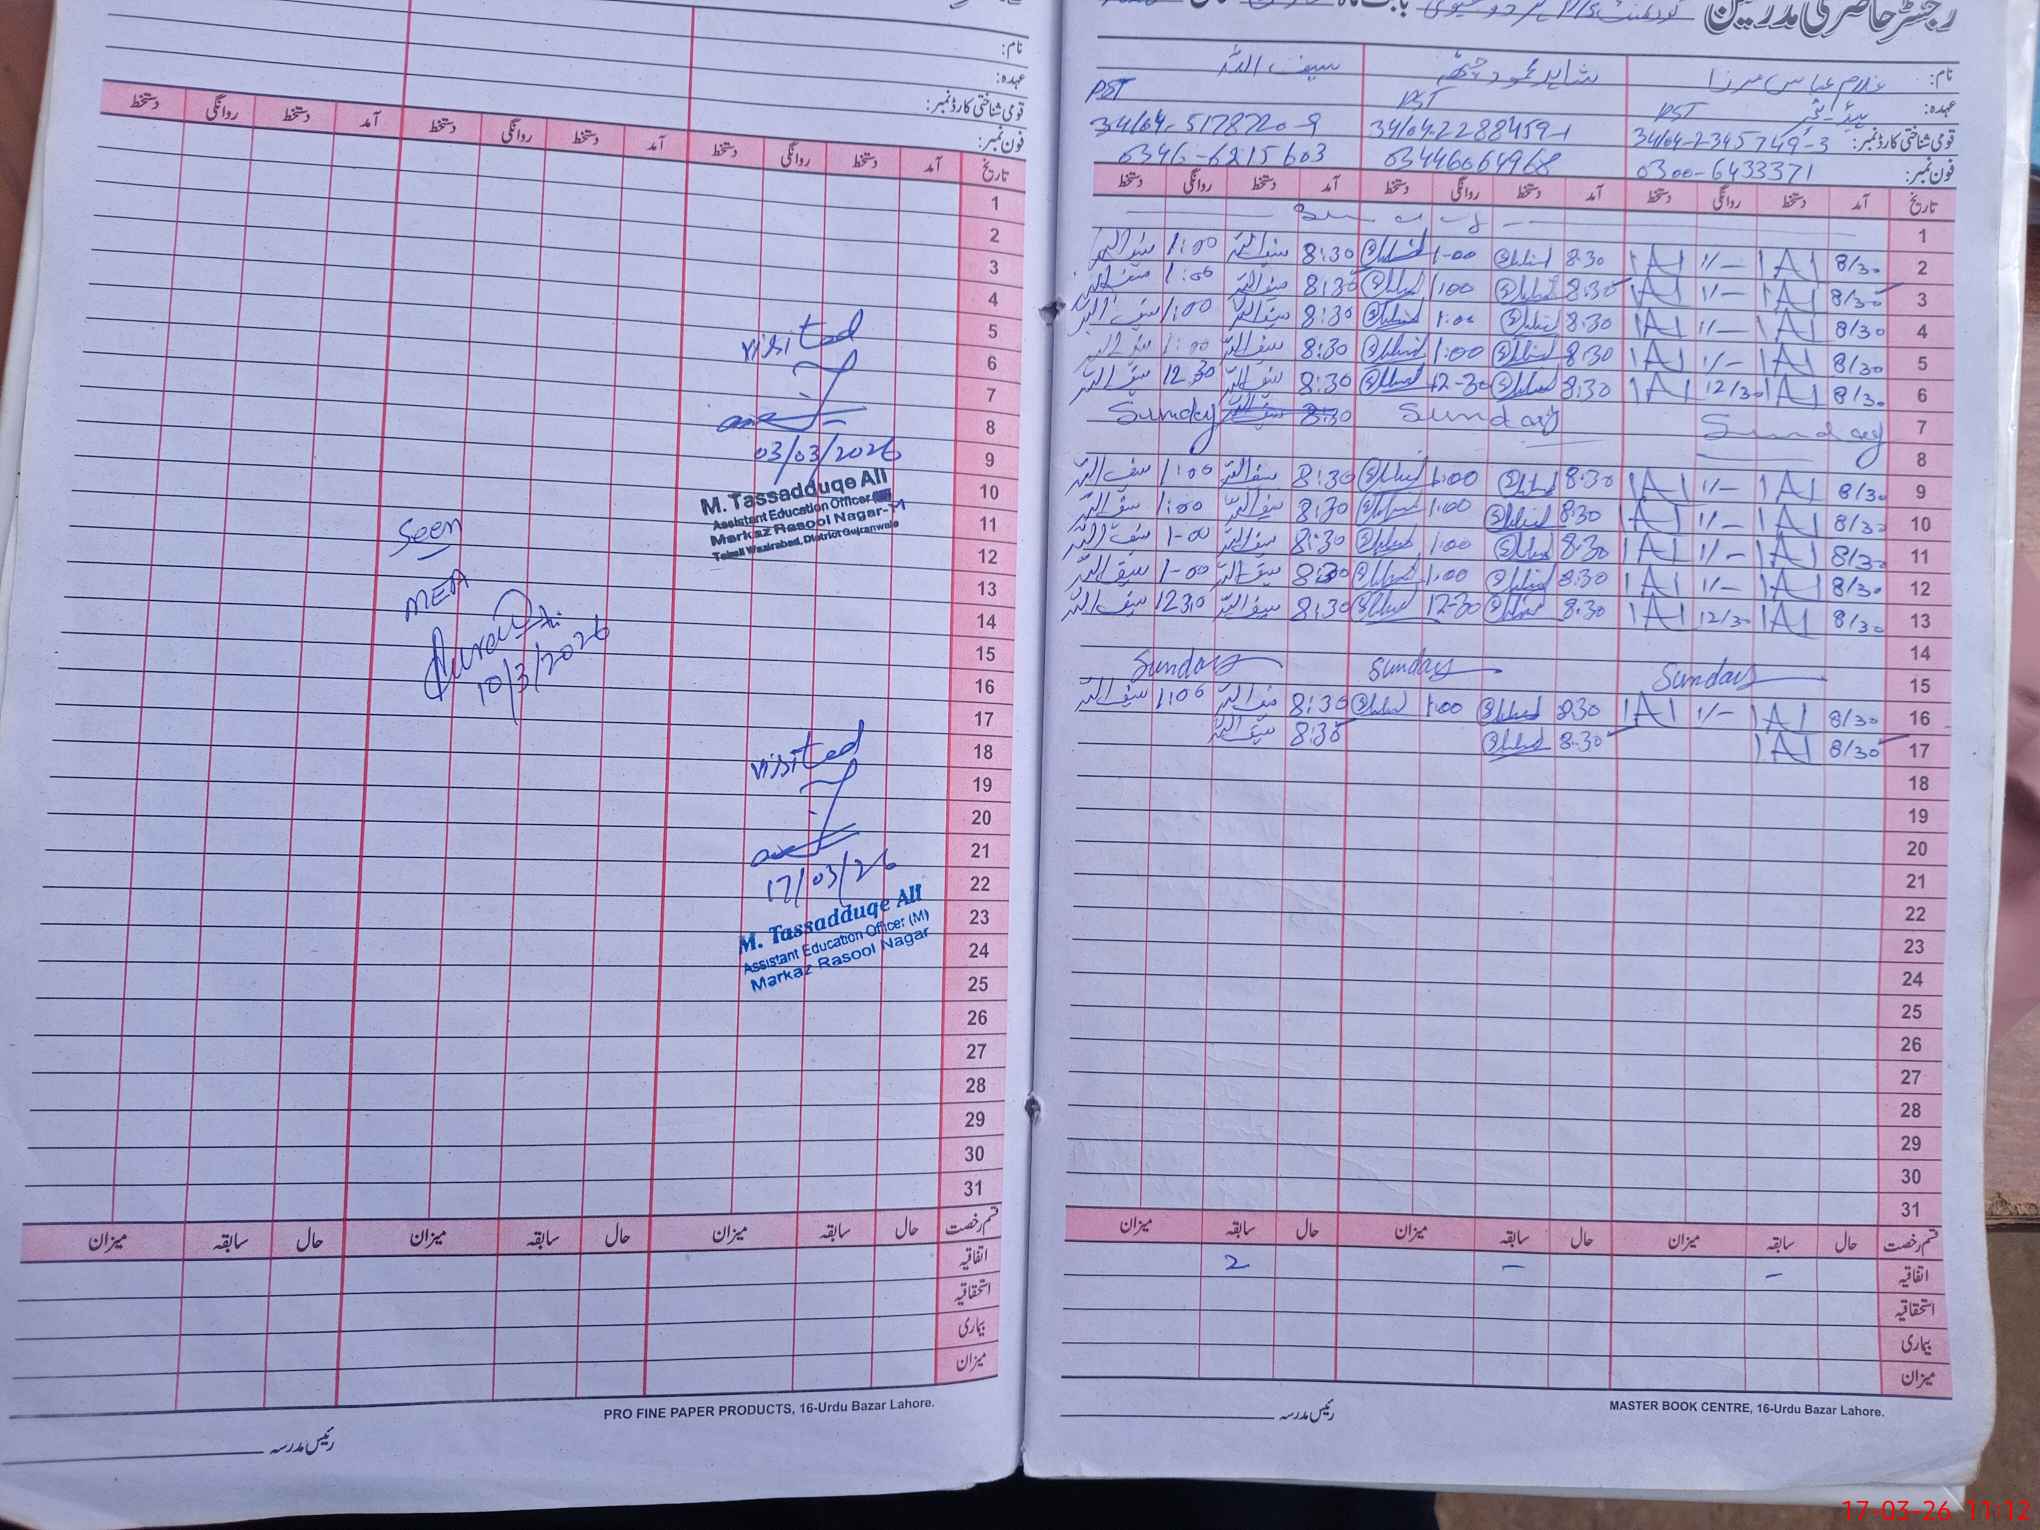 رجسٹر حاضری مدرسین
نام: غلام عباس مرزا شاہد محمود چٹھہ سیف اللہ
عہدہ: PST PST PST
قومی شناختی کارڈ نمبر: 34104-2345749-3 34104-2288459-1 34104-5178720-9
فون نمبر: 0300-6433371 03446064968 0346-6215603
تاریخ آمد دستخط روانگی دستخط آمد دستخط روانگی دستخط آمد دستخط روانگی دستخط
1
2 8/30 1/- 8:30 1-00 8:30 سیف اللہ 1:00 سیف اللہ
3 8/30 1/- 8:30 1:00 8:30 سیف اللہ 1:00 سیف اللہ
4 8/30 1/- 8:30 1:00 8:30 سیف اللہ 1:00 سیف اللہ
5 8/30 1/- 8:30 1:00 8:30 سیف اللہ 1:00 سیف اللہ
6 8/30 12/30 8:30 12-30 8:30 سیف اللہ 12 30 سیف اللہ
7 Sunday Sunday 8:30 Sunday
8
9 8/30 1/- 8:30 1:00 8:30 سیف اللہ 1:00 سیف اللہ
10 8/30 1/- 8:30 1:00 8:30 سیف اللہ 1:00 سیف اللہ
11 8/30 1/- 8:30 1:00 8:30 سیف اللہ 1-00 سیف اللہ
12 8/30 1/- 8:30 1:00 8:30 سیف اللہ 1-00 سیف اللہ
13 8/30 12/30 8:30 12-30 8:30 سیف اللہ 1230 سیف اللہ
14
15 Sunday Sunday Sunday
16 8/30 1/- 8:30 1:00 8:30 سیف اللہ 1:00 سیف اللہ
17 8/30 8:30 8:30 سیف اللہ
18
19
20
21
22
23
24
25
26
27
28
29
30
31
قسم رخصت حال سابقہ میزان حال سابقہ میزان حال سابقہ میزان
اتفاقیہ - - 2
استحقاقیہ
بیماری
میزان
رئیس مدرسہ
MASTER BOOK CENTRE, 16-Urdu Bazar Lahore.
نام:
عہدہ:
قومی شناختی کارڈ نمبر:
فون نمبر:
تاریخ آمد دستخط روانگی دستخط آمد دستخط روانگی دستخط آمد دستخط روانگی دستخط
1
2
3
4
5
6
7
8
9
10
11
12
13
14
15
16
17
18
19
20
21
22
23
24
25
26
27
28
29
30
31
visited
03/03/2026
M. Tassadduqe Ali
Assistant Education Officer
Markaz Rasool Nagar-M
Tehsil Wazirabad, District Gujranwala
Seen
MEA
10/3/2026
visited
17/03/26
M. Tassadduqe Ali
Assistant Education Officer (M)
Markaz Rasool Nagar
قسم رخصت حال سابقہ میزان حال سابقہ میزان حال سابقہ میزان
اتفاقیہ
استحقاقیہ
بیماری
میزان
PRO FINE PAPER PRODUCTS, 16-Urdu Bazar Lahore.
رئیس مدرسہ
17-03-26 11:12